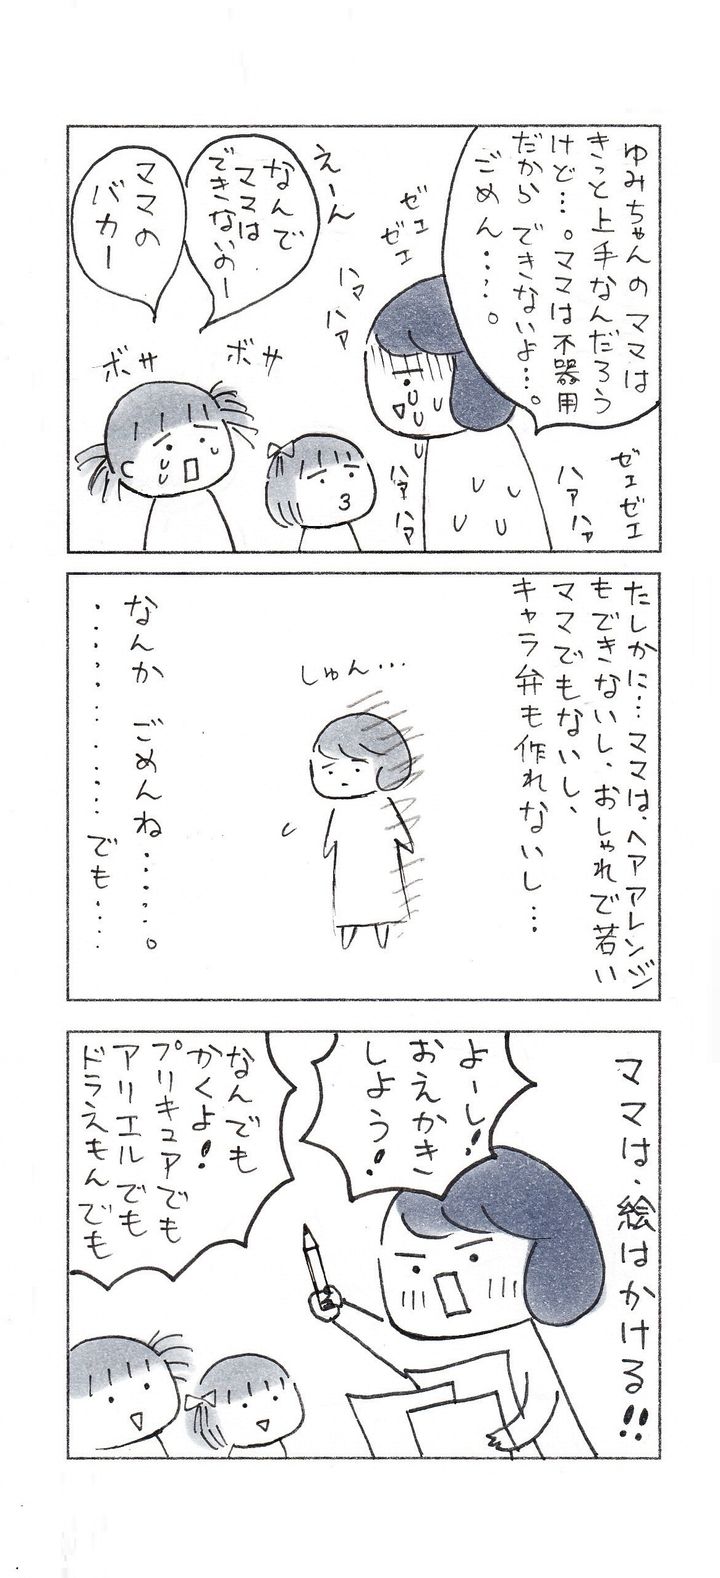 ゆみちゃんのママは
きっと上手なんだろう
けど…。ママは不器用
だから できないよ…。
ごめん……。
ゼエ
ゼエ
ハァ
ハァ
えーん
なんで
ママは
できないのー
ママの
バカー
ボサ
ボサ
ハァ
ハァ
ハァ
ハァ
ゼエゼエ
たしかに…ママは、ヘアアレンジ
もできないし、おしゃれで若い
ママでもないし、
キャラ弁も作れないし…
しゅん…
なんか ごめんね……。
…………でも……
ママは、絵はかける!!
よーし!
おえかき
しよう!
なんでも
かくよ!
プリキュアでも
アリエルでも
ドラえもんでも